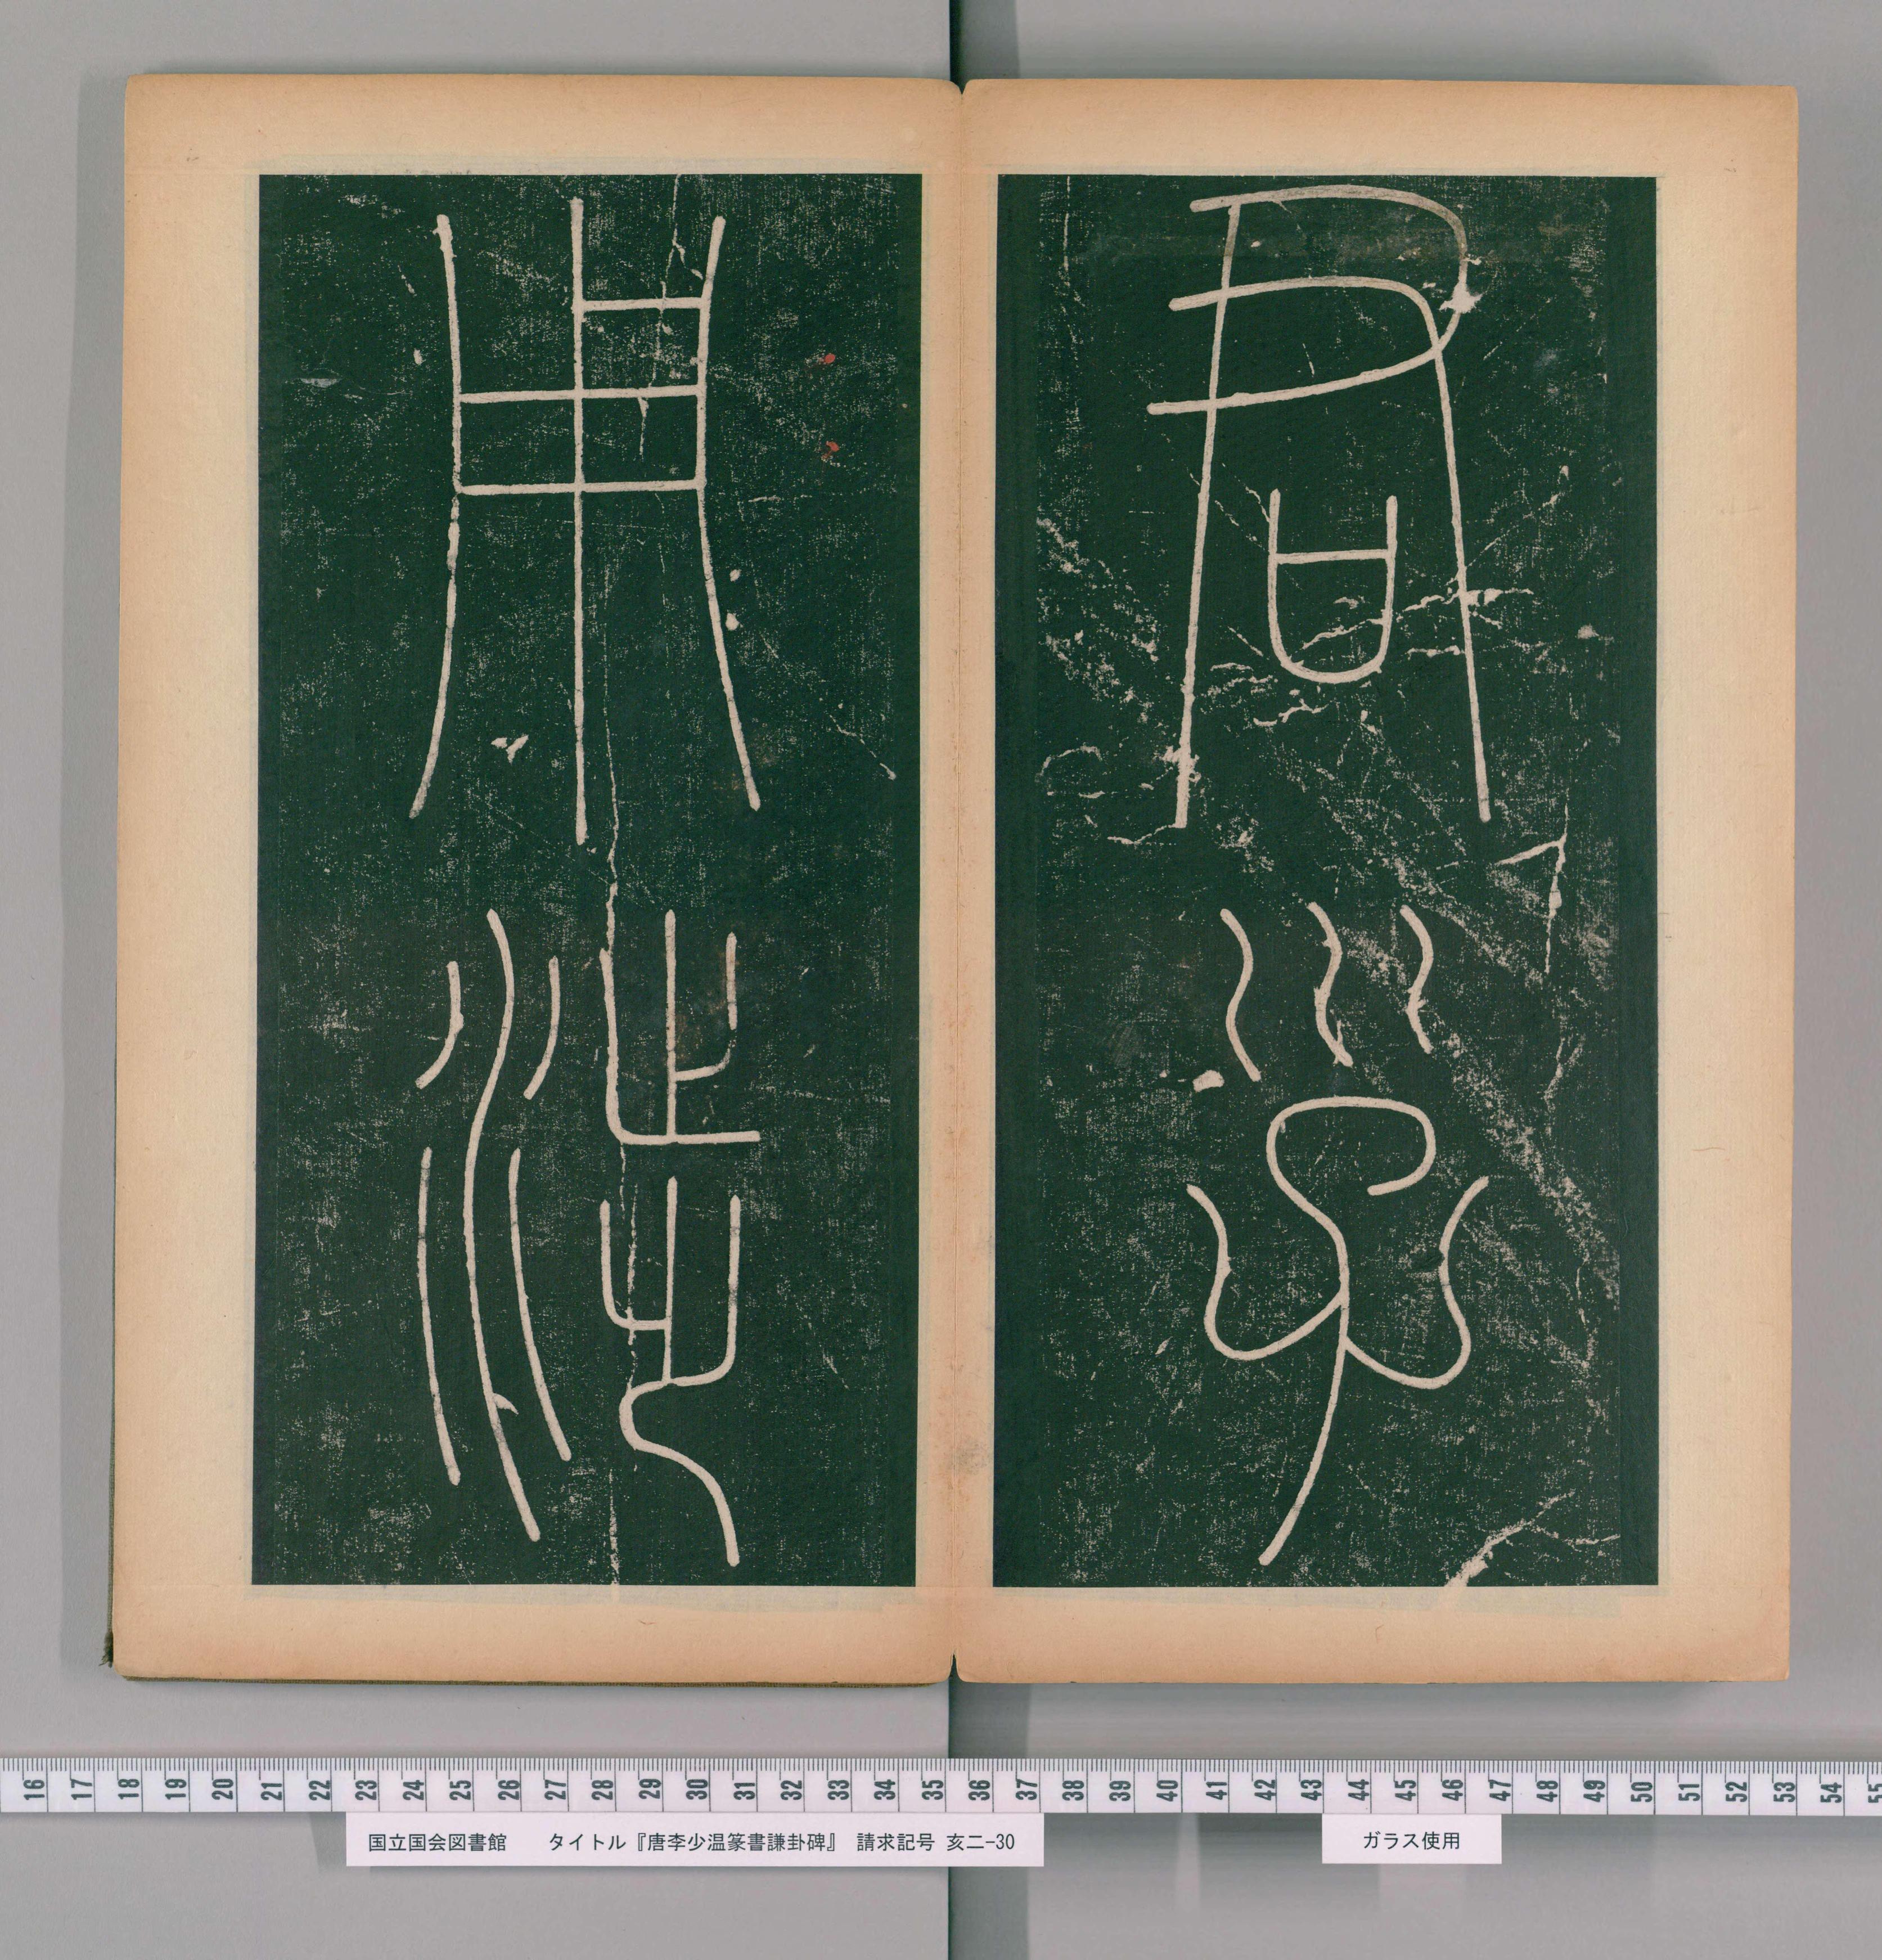 君子
用涉
国立国会図書館　タイトル『唐李少温篆書謙卦碑』　請求記号 亥二-30
ガラス使用
16 17 18 19 20 21 22 23 24 25 26 27 28 29 30 31 32 33 34 35 36 37 38 39 40 41 42 43 44 45 46 47 48 49 50 51 52 53 54 55